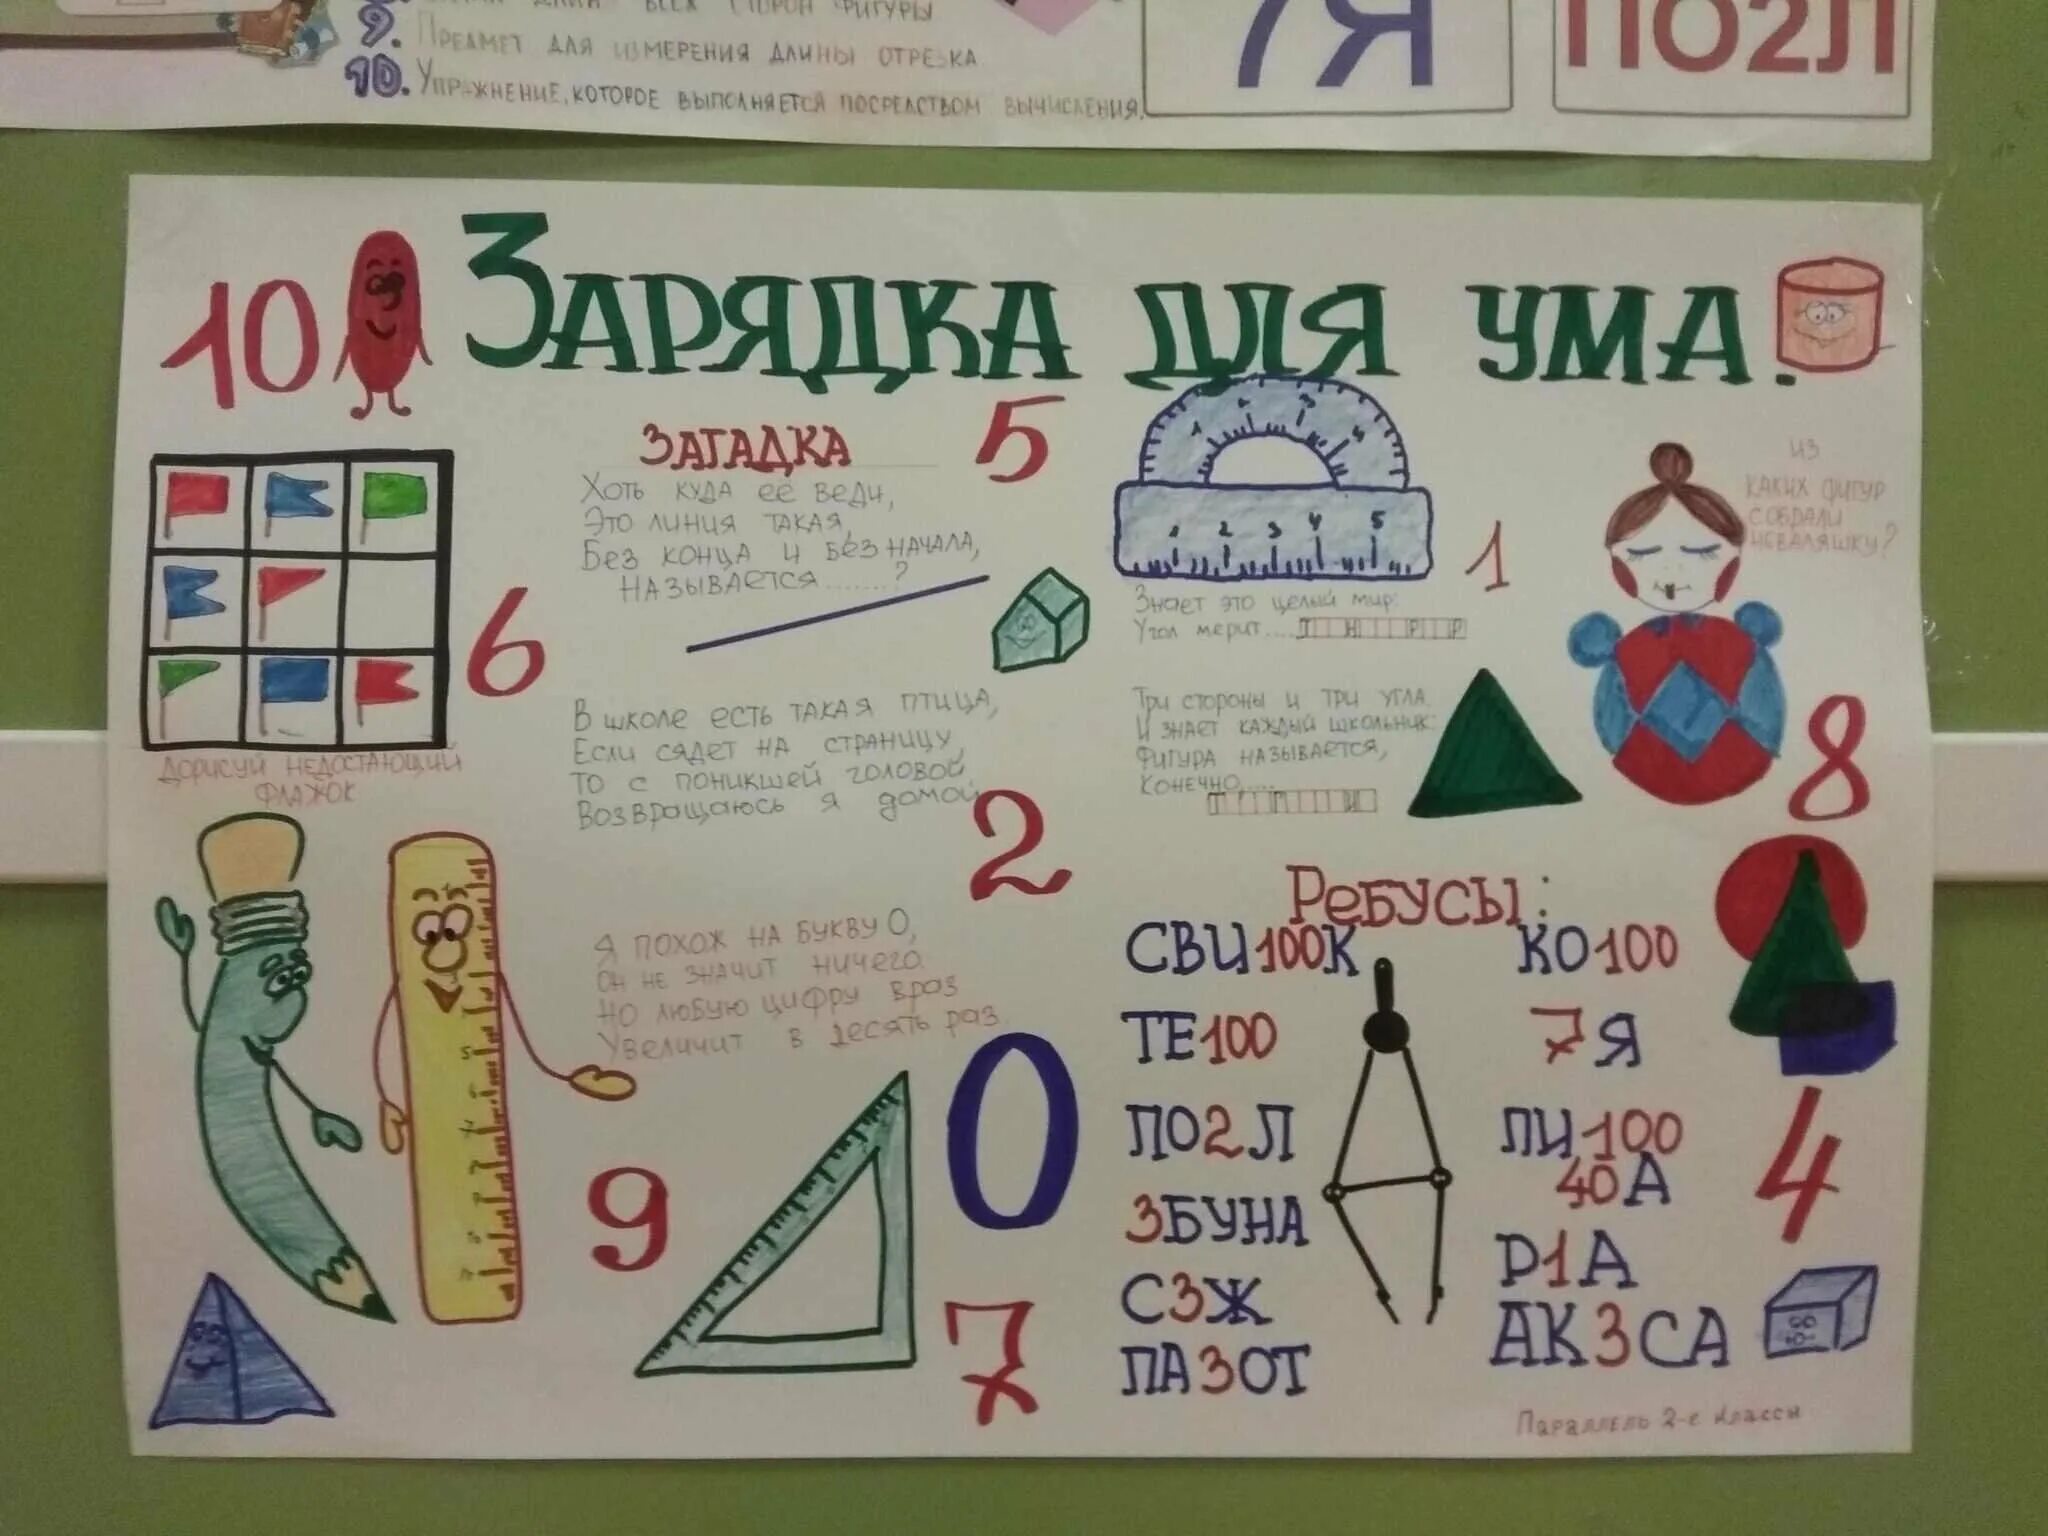 ВСЕХ СТОРОН ФИГУРЫ
9. ПРЕДМЕТ ДЛЯ ИЗМЕРЕНИЯ ДЛИНЫ ОТРЕЗКА
10. УПРАЖНЕНИЕ, КОТОРОЕ ВЫПОЛНЯЕТСЯ ПОСРЕДСТВОМ ВЫЧИСЛЕНИЯ.
7Я
ПО2Л
10
ЗАРЯДКА ДЛЯ УМА.
ДОРИСУЙ НЕДОСТАЮЩИЙ
ФЛАЖОК
6
ЗАГАДКА
5
ХОТЬ КУДА ЕЁ ВЕДИ,
ЭТО ЛИНИЯ ТАКАЯ,
БЕЗ КОНЦА И БЕЗ НАЧАЛА,
НАЗЫВАЕТСЯ........?
В ШКОЛЕ ЕСТЬ ТАКАЯ ПТИЦА,
ЕСЛИ СЯДЕТ НА СТРАНИЦУ,
ТО С ПОНИКШЕЙ ГОЛОВОЙ
ВОЗВРАЩАЮСЬ Я ДОМОЙ
2
Я ПОХОЖ НА БУКВУ О,
ОН НЕ ЗНАЧИТ НИЧЕГО.
НО ЛЮБУЮ ЦИФРУ ВРАЗ
УВЕЛИЧИТ В ДЕСЯТЬ РАЗ.
0
9
7
1 2 3 4
1 2 3 4 5
1
ЗНАЕТ ЭТО ЦЕЛЫЙ МИР:
УГОЛ МЕРИТ....Т Н Р Р
ТРИ СТОРОНЫ И ТРИ УГЛА.
И ЗНАЕТ КАЖДЫЙ ШКОЛЬНИК:
ФИГУРА НАЗЫВАЕТСЯ,
КОНЕЧНО,....
ИЗ
КАКИХ ФИГУР
СОБРАЛИ
НЕВАЛЯШКУ?
8
РЕБУСЫ:
СВИ100К
КО100
ТЕ100
7Я
ПО2Л
ПИ100
3БУНА
40А
С3Ж
Р1А
ПА3ОТ
АК3СА
4
ПАРАЛЛЕЛЬ 2-Е КЛАССЫ